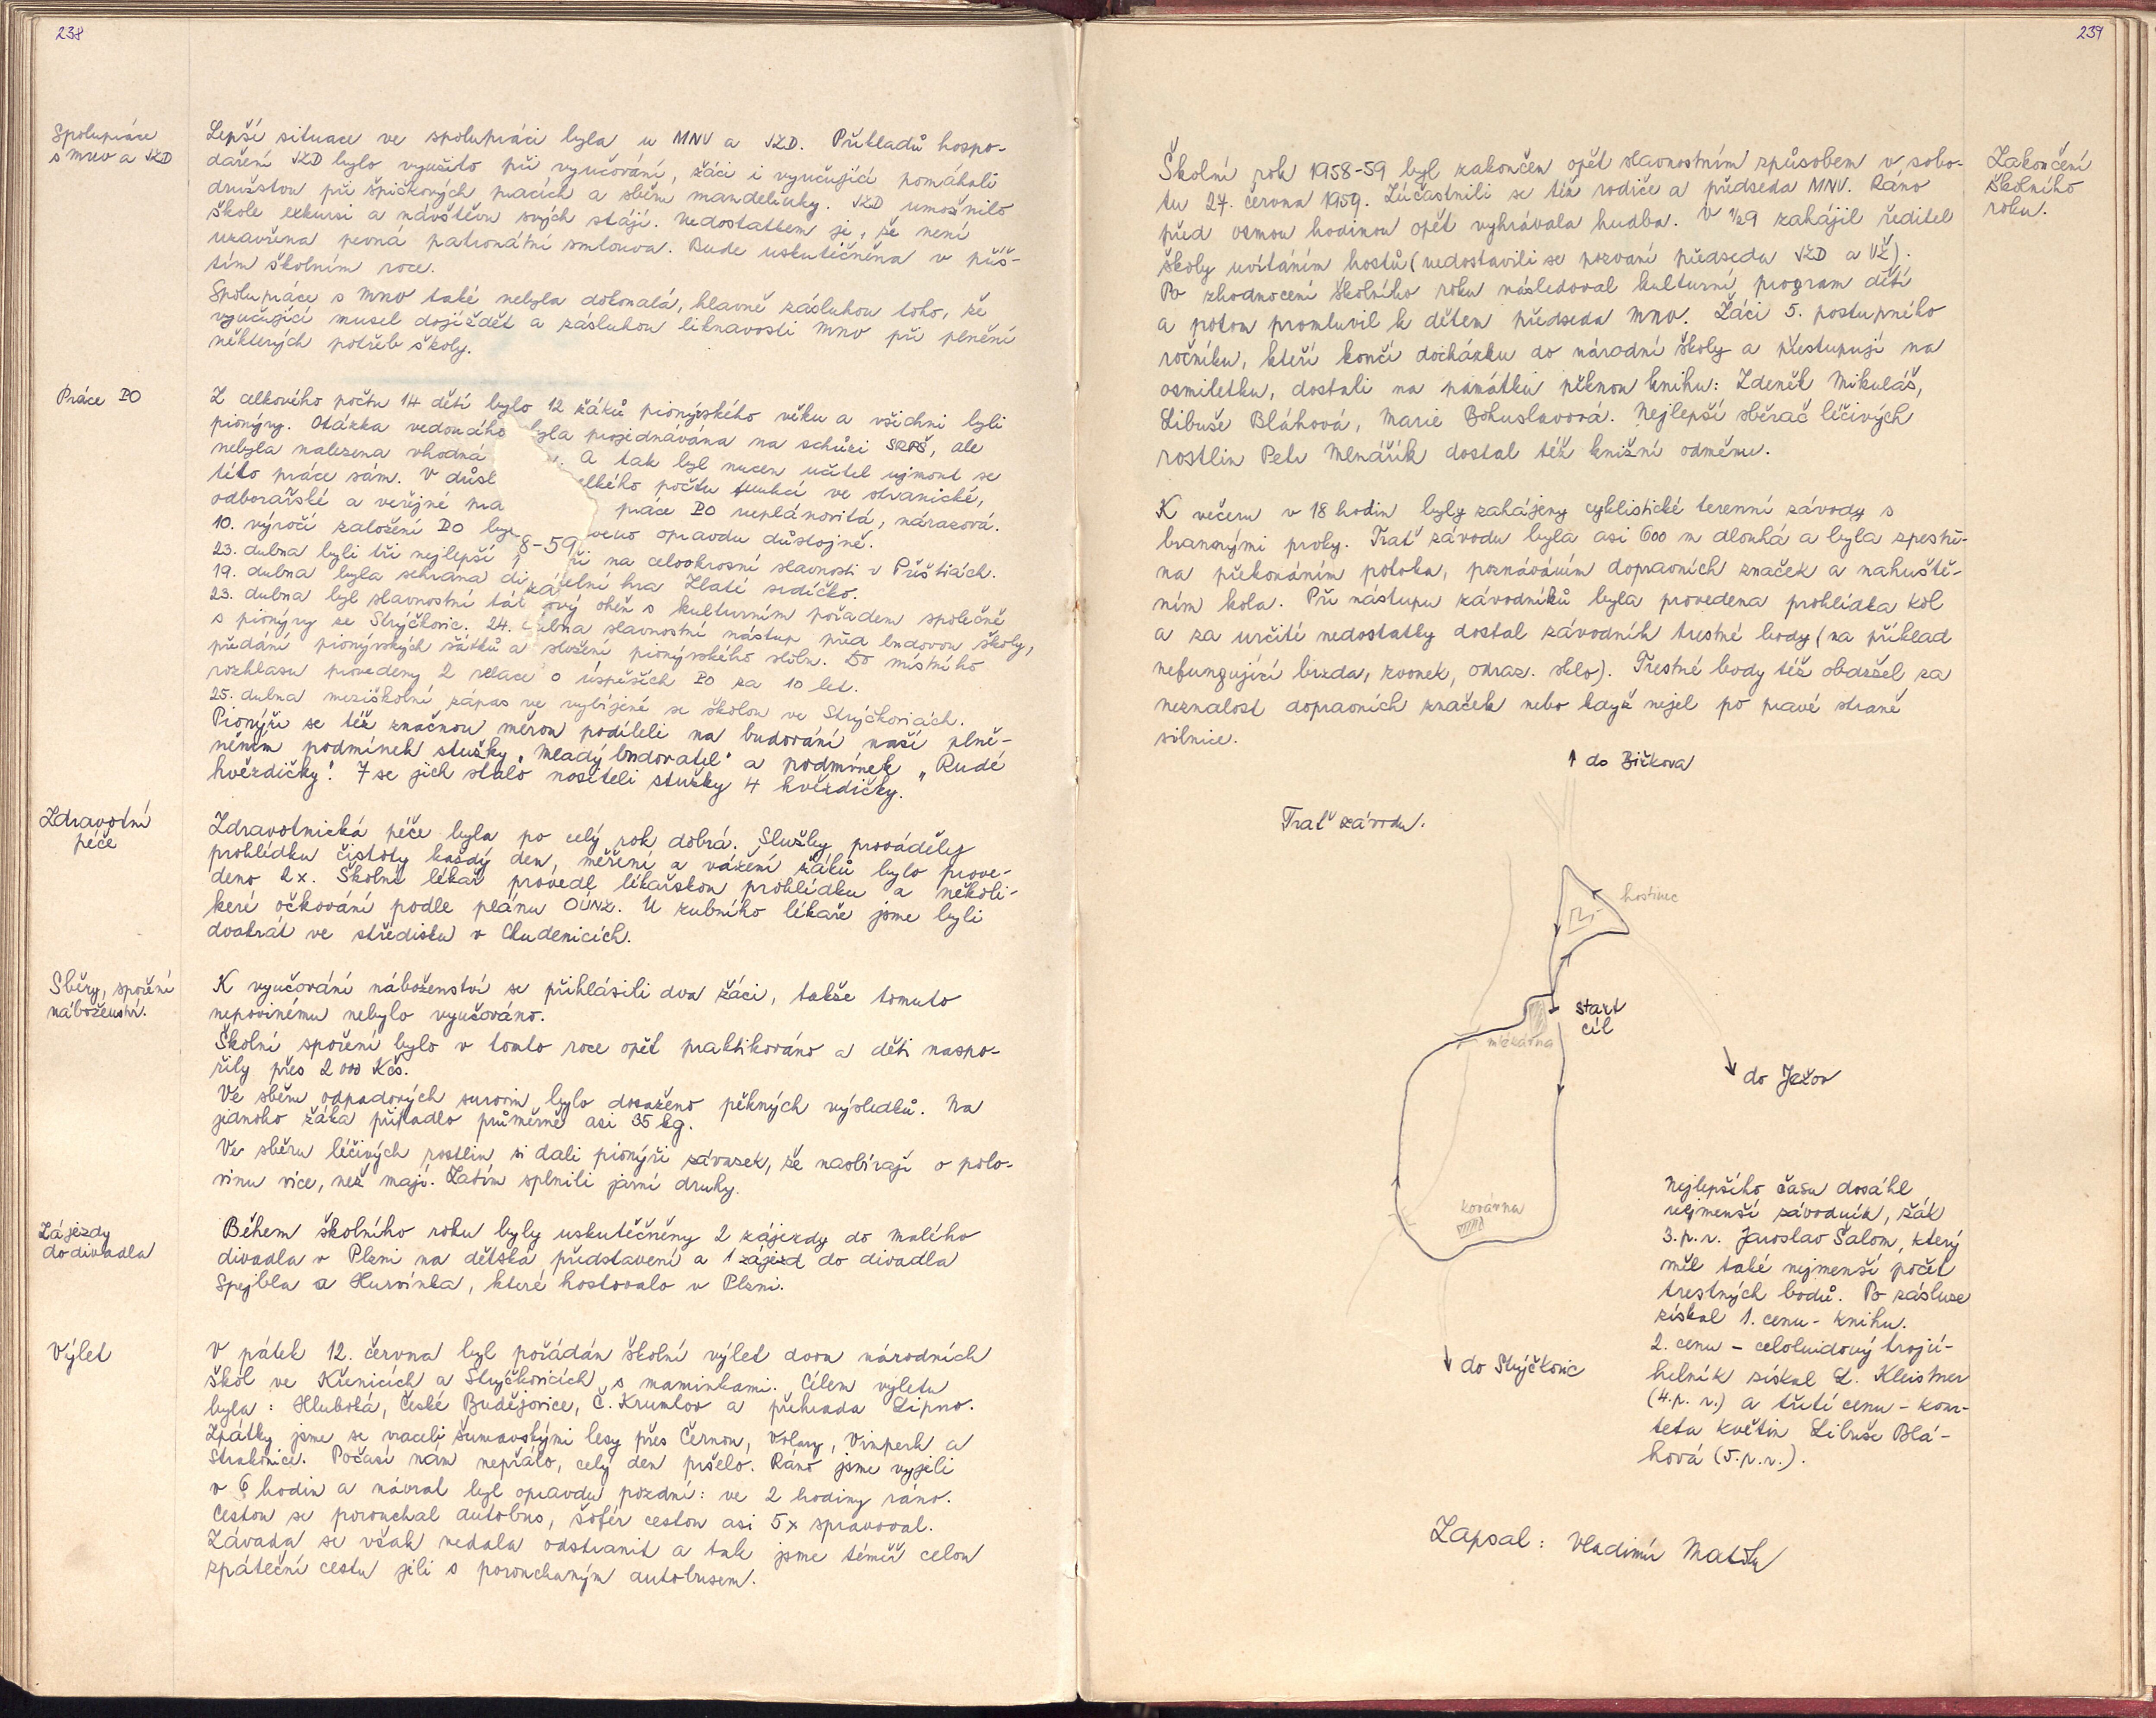 238
Spolupráce
s MNV a JZD
Lepší situace ve spolupráci byla u MNV a JZD. Příkladů hospo-
daření JZD bylo využito při vyučování, žáci i vyučující pomáhali
družstvu při špičkových pracích a sběru mandelinky. JZD umožnilo
škole exkursi a návštěvu svých stájí. Nedostatkem je, že není
uzavřena pevná patronátní smlouva. Bude uskutečněna v příš-
tím školním roce.
Spolupráce s MNV také nebyla dokonalá, hlavně zásluhou toho, že
vyučující musel dojíždět a zásluhou liknavosti MNV při plnění
některých potřeb školy.
Práce PO
Z celkového počtu 14 dětí bylo 12 žáků pionýrského věku a všichni byli
pionýry. Otázka vedoucího byla projednávána na schůzi SRPŠ, ale
nebyla nalezena vhodná . A tak byl nucen učitel ujmout se
této práce sám. V důsl elkého počtu funkcí ve stranické,
odborářské a veřejné pra práce PO neplánovitá, nárazová.
10. výročí založení PO by veno opravdu důstojně.
8-59
23. dubna byli tři nejlepší ři na celookresní slavnosti v Přešticích.
19. dubna byla sehrána di elní hra Zlaté srdíčko.
23. dubna byl slavnostní tál ový oheň s kulturním pořadem společně
s pionýry ze Strýčkovic. 24. dubna slavnostní nástup před budovou školy,
předání pionýrských šátků a složení pionýrského slibu. Do místního
rozhlasu provedeny 2 relace o úspěších PO za 10 let.
25. dubna meziškolní zápas ve vybíjené se školou ve Strýčkovicích.
Pionýři se též značnou měrou podíleli na budování naší plně-
ním podmínek stužky "Mladý budovatel" a podmínek "Rudé
hvězdičky". 7 se jich stalo nositeli stužky 4 hvězdičky.
Zdravotní
péče
Zdravotnická péče byla po celý rok dobrá. Služby prováděly
prohlídku čistoty každý den, měření a vážení žáků bylo prove-
deno 2x. Školní lékař provedl lékařskou prohlídku a několi-
keré očkování podle plánu OÚNZ. U zubního lékaře jsme byli
dvakrát ve středisku v Chudenicích.
Sběry, spoření
náboženství.
K vyučování náboženství se přihlásili dva žáci, takže tomuto
nepovinému nebylo vyučováno.
Školní spoření bylo v tomto roce opět praktikováno a děti naspo-
řily přes 2 000 Kčs.
Ve sběru odpadových surovin bylo dosaženo pěkných výsledků. Na
jednoho žáka připadlo průměrně asi 35 kg.
Ve sběru léčivých rostlin si dali pionýři závazek, že nasbírají o polo-
vinu více, než mají. Zatím splnili jarní druhy.
Zájezdy
do divadla
Během školního roku byly uskutečněny 2 zájezdy do malého
divadla v Plzni na dětská představení a 1 zájezd do divadla
Spejbla a Hurvínka, které hostovalo v Plzni.
Výlet
V pátek 12. června byl pořádán školní výlet dvou národních
škol ve Křenicích a Strýčkovicích s maminkami. Cílem výletu
byla: Hluboká, České Budějovice, Č. Krumlov a přehrada Lipno.
Zpátky jsme se vraceli šumavskými lesy přes Černou, Volary, Vimperk a
Strakonice. Počasí nám nepřálo, celý den pršelo. Ráno jsme vyjeli
v 6 hodin a návrat byl opravdu pozdní: ve 2 hodiny ráno.
Cestou se porouchal autobus, šofér cestou asi 5x spravoval.
Závada se však nedala odstranit a tak jsme téměř celou
zpáteční cestu jeli s porouchaným autobusem.
239
Zakončení
školního
roku.
Školní rok 1958-59 byl zakončen opět slavnostním způsobem v sobo-
tu 27. června 1959. Zúčastnili se též rodiče a předseda MNV. Ráno
před osmou hodinou opět vyhrávala hudba. V 1/29 zahájil ředitel
školy uvítáním hostů (nedostavili se pozvaní předseda JZD a VŽ).
Po zhodnocení školního roku následoval kulturní program dětí
a potom promluvil k dětem předseda MNV. Žáci 5. postupného
ročníku, kteří končí docházku do národní školy a přestupují na
osmiletku, dostali na památku pěknou knihu: Zdeněk Mikuláš,
Libuše Bláhová, Marie Bohuslavová. Nejlepší sběrač léčivých
rostlin Petr Mlnářík dostal též knižní odměnu.
K večeru v 18 hodin byly zahájeny cyklistické terenní závody s
brannými prvky. Trať závodu byla asi 600 m dlouhá a byla zpestře-
na překonáním potoka, poznáváním dopravních značek a nahuště-
ním kola. Při nástupu závodníků byla provedena prohlídka kol
a za určité nedostatky dostal závodník trestné body (na příklad
nefungující brzda, zvonek, odraz. sklo). Trestné body též obdržel za
neznalost dopravních značek nebo když nejel po pravé straně
silnice.
do Bižkova
Trať závodu.
hostinec
start
cíl
mlékárna
do Ježov
kovárna
do Strýčkovic
Nejlepšího času dosáhl
nejmenší závodník, žák
3.p.r. Jaroslav Šalom, který
měl také nejmenší počet
trestných bodů. Po zásluze
získal 1. cenu - knihu.
2. cenu - celoluidový trojú-
helník získal L. Kleisner
(4.p. r.) a třetí cenu - kor-
teta květin Libuše Blá-
hová (5.p.r.).
Zapsal: Vladimír